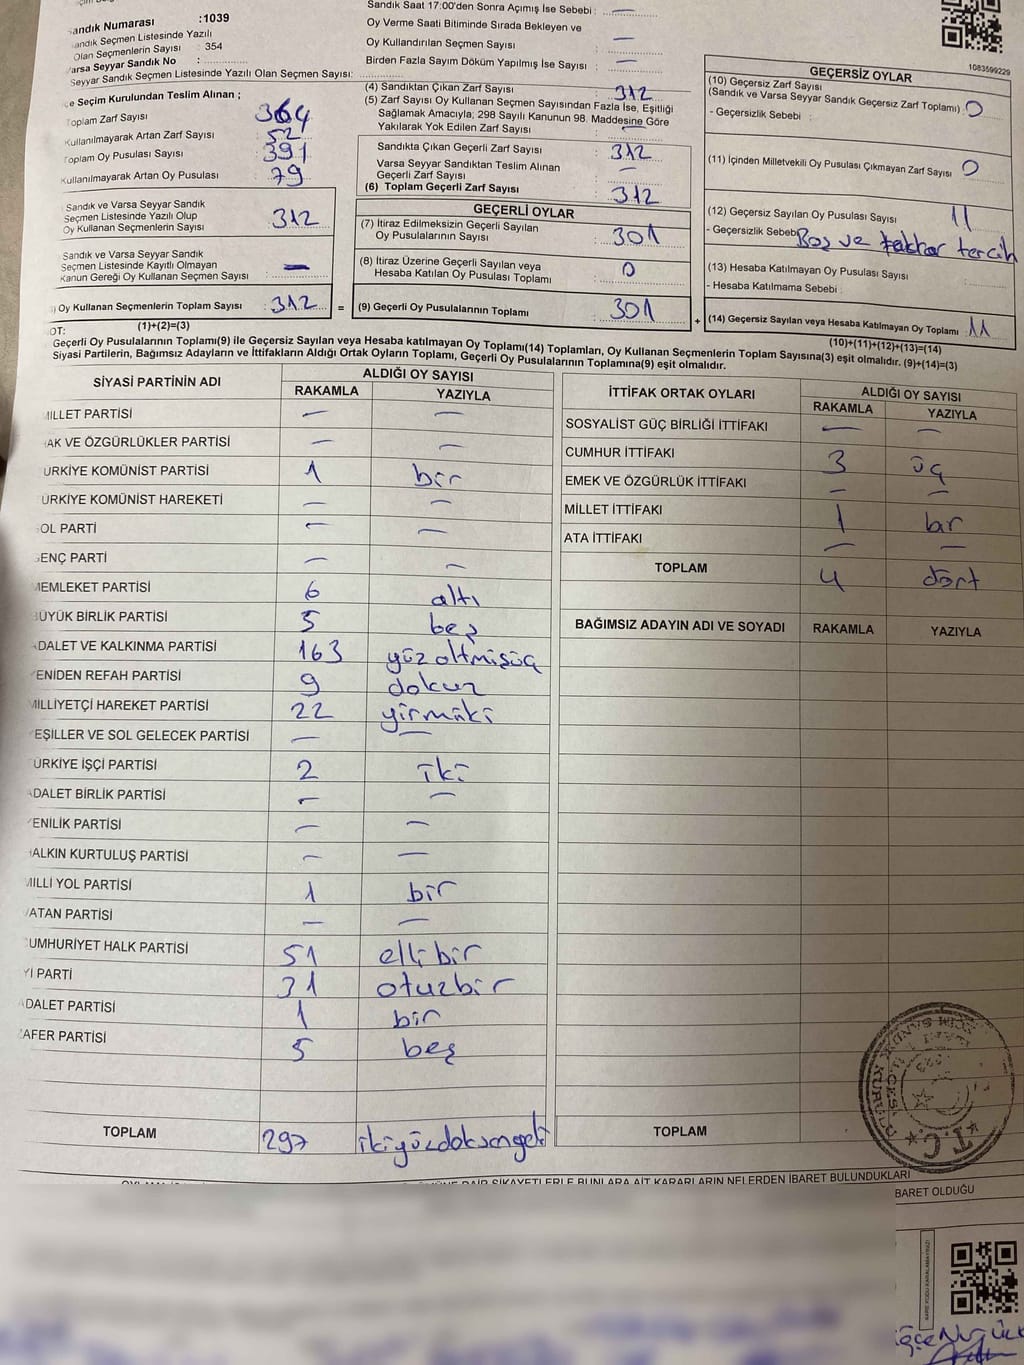 Sandık Saat 17:00'den Sonra Açımış İse Sebebi : —
Oy Verme Saati Bitiminde Sırada Bekleyen ve
Oy Kullandırılan Seçmen Sayısı : —
Birden Fazla Sayım Döküm Yapılmış İse Sayısı : —
andık Numarası :1039
andık Seçmen Listesinde Yazılı
Olan Seçmenlerin Sayısı : 354
Varsa Seyyar Sandık No :
Seyyar Sandık Seçmen Listesinde Yazılı Olan Seçmen Sayısı:
e Seçim Kurulundan Teslim Alınan ;
Toplam Zarf Sayısı 364
Kullanılmayarak Artan Zarf Sayısı 52
Toplam Oy Pusulası Sayısı 391
Kullanılmayarak Artan Oy Pusulası 79
Sandık ve Varsa Seyyar Sandık
Seçmen Listesinde Yazılı Olup
Oy Kullanan Seçmenlerin Sayısı : 312
Sandık ve Varsa Seyyar Sandık
Seçmen Listesinde Kayıtlı Olmayan
Kanun Gereği Oy Kullanan Seçmen Sayısı : —
) Oy Kullanan Seçmenlerin Toplam Sayısı : 312 =
(1)+(2)=(3)
(4) Sandıktan Çıkan Zarf Sayısı : 312
(5) Zarf Sayısı Oy Kullanan Seçmen Sayısından Fazla İse, Eşitliği
Sağlamak Amacıyla; 298 Sayılı Kanunun 98. Maddesine Göre
Yakılarak Yok Edilen Zarf Sayısı : —
Sandıkta Çıkan Geçerli Zarf Sayısı : 312
Varsa Seyyar Sandıktan Teslim Alınan
Geçerli Zarf Sayısı : —
(6) Toplam Geçerli Zarf Sayısı : 312
GEÇERLİ OYLAR
(7) İtiraz Edilmeksizin Geçerli Sayılan
Oy Pusulalarının Sayısı : 301
(8) İtiraz Üzerine Geçerli Sayılan veya
Hesaba Katılan Oy Pusulası Toplamı : 0
(9) Geçerli Oy Pusulalarının Toplamı : 301 +
1083599229
GEÇERSİZ OYLAR
(10) Geçersiz Zarf Sayısı
(Sandık ve Varsa Seyyar Sandık Geçersiz Zarf Toplamı) : 0
- Geçersizlik Sebebi :
(11) İçinden Milletvekili Oy Pusulası Çıkmayan Zarf Sayısı : 0
(12) Geçersiz Sayılan Oy Pusulası Sayısı : 11
- Geçersizlik Sebebi Boş ve tekrar tercih
(13) Hesaba Katılmayan Oy Pusulası Sayısı :
- Hesaba Katılmama Sebebi :
(14) Geçersiz Sayılan veya Hesaba Katılmayan Oy Toplamı : 11
(10)+(11)+(12)+(13)=(14)
OT:
Geçerli Oy Pusulalarının Toplamı(9) ile Geçersiz Sayılan veya Hesaba katılmayan Oy Toplamı(14) Toplamları, Oy Kullanan Seçmenlerin Toplam Sayısına(3) eşit olmalıdır. (9)+(14)=(3)
Siyasi Partilerin, Bağımsız Adayların ve İttifakların Aldığı Ortak Oyların Toplamı, Geçerli Oy Pusulalarının Toplamına(9) eşit olmalıdır.
SİYASİ PARTİNİN ADI ALDIĞI OY SAYISI
RAKAMLA YAZIYLA
MİLLET PARTİSİ — —
AK VE ÖZGÜRLÜKLER PARTİSİ — —
ÜRKİYE KOMÜNİST PARTİSİ 1 bir
ÜRKİYE KOMÜNİST HAREKETİ — —
OL PARTİ — —
GENÇ PARTİ — —
MEMLEKET PARTİSİ 6 altı
ÜYÜK BİRLİK PARTİSİ 5 beş
ADALET VE KALKINMA PARTİSİ 163 yüzaltmışüç
YENİDEN REFAH PARTİSİ 9 dokuz
MİLLİYETÇİ HAREKET PARTİSİ 22 yirmiiki
YEŞİLLER VE SOL GELECEK PARTİSİ — —
ÜRKİYE İŞÇİ PARTİSİ 2 iki
ADALET BİRLİK PARTİSİ — —
YENİLİK PARTİSİ — —
HALKIN KURTULUŞ PARTİSİ — —
MİLLİ YOL PARTİSİ 1 bir
VATAN PARTİSİ — —
CUMHURİYET HALK PARTİSİ 51 ellibir
Yİ PARTİ 31 otuzbir
ADALET PARTİSİ 1 bir
ZAFER PARTİSİ 5 beş
TOPLAM 297 ikiyüzdoksanyedi
İTTİFAK ORTAK OYLARI ALDIĞI OY SAYISI
RAKAMLA YAZIYLA
SOSYALİST GÜÇ BİRLİĞİ İTTİFAKI — —
CUMHUR İTTİFAKI 3 üç
EMEK VE ÖZGÜRLÜK İTTİFAKI — —
MİLLET İTTİFAKI 1 bir
ATA İTTİFAKI — —
TOPLAM 4 dört
BAĞIMSIZ ADAYIN ADI VE SOYADI RAKAMLA YAZIYLA
TOPLAM
T.C.
DAİR ŞİKAYETLERLE BUNLARA AİT KARARLARIN NELERDEN İBARET BULUNDUKLARI
BARET OLDUĞU